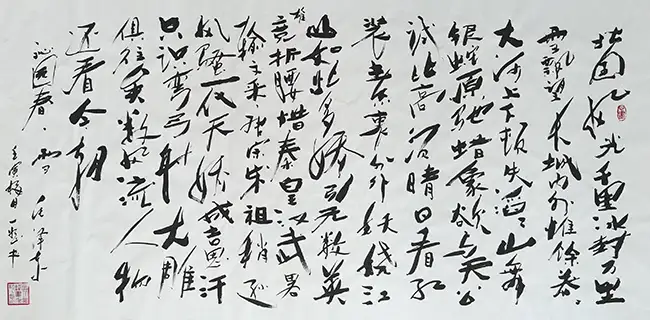 北国风光千里冰封万里
雪飘望长城内外惟餘莽莽
大河上下顿失滔滔山舞
银蛇原驰蜡象欲与天公
试比高须晴日看红
装素裹分外妖娆江
山如此多娇引无数英
雄竞折腰惜秦皇汉武略
输文采唐宗宋祖稍逊
风骚一代天骄成吉思汗
只识弯弓射大雕
俱往矣数风流人物
还看今朝
沁园春雪 毛泽东
壬寅梅月